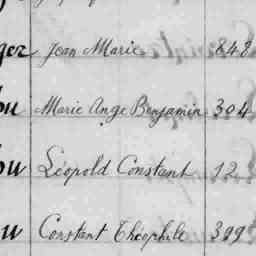 ger Jean Marie 848
ou Marie Ange Benjamin 304
ou Léopold Constant 12
u Constant Théophile 399